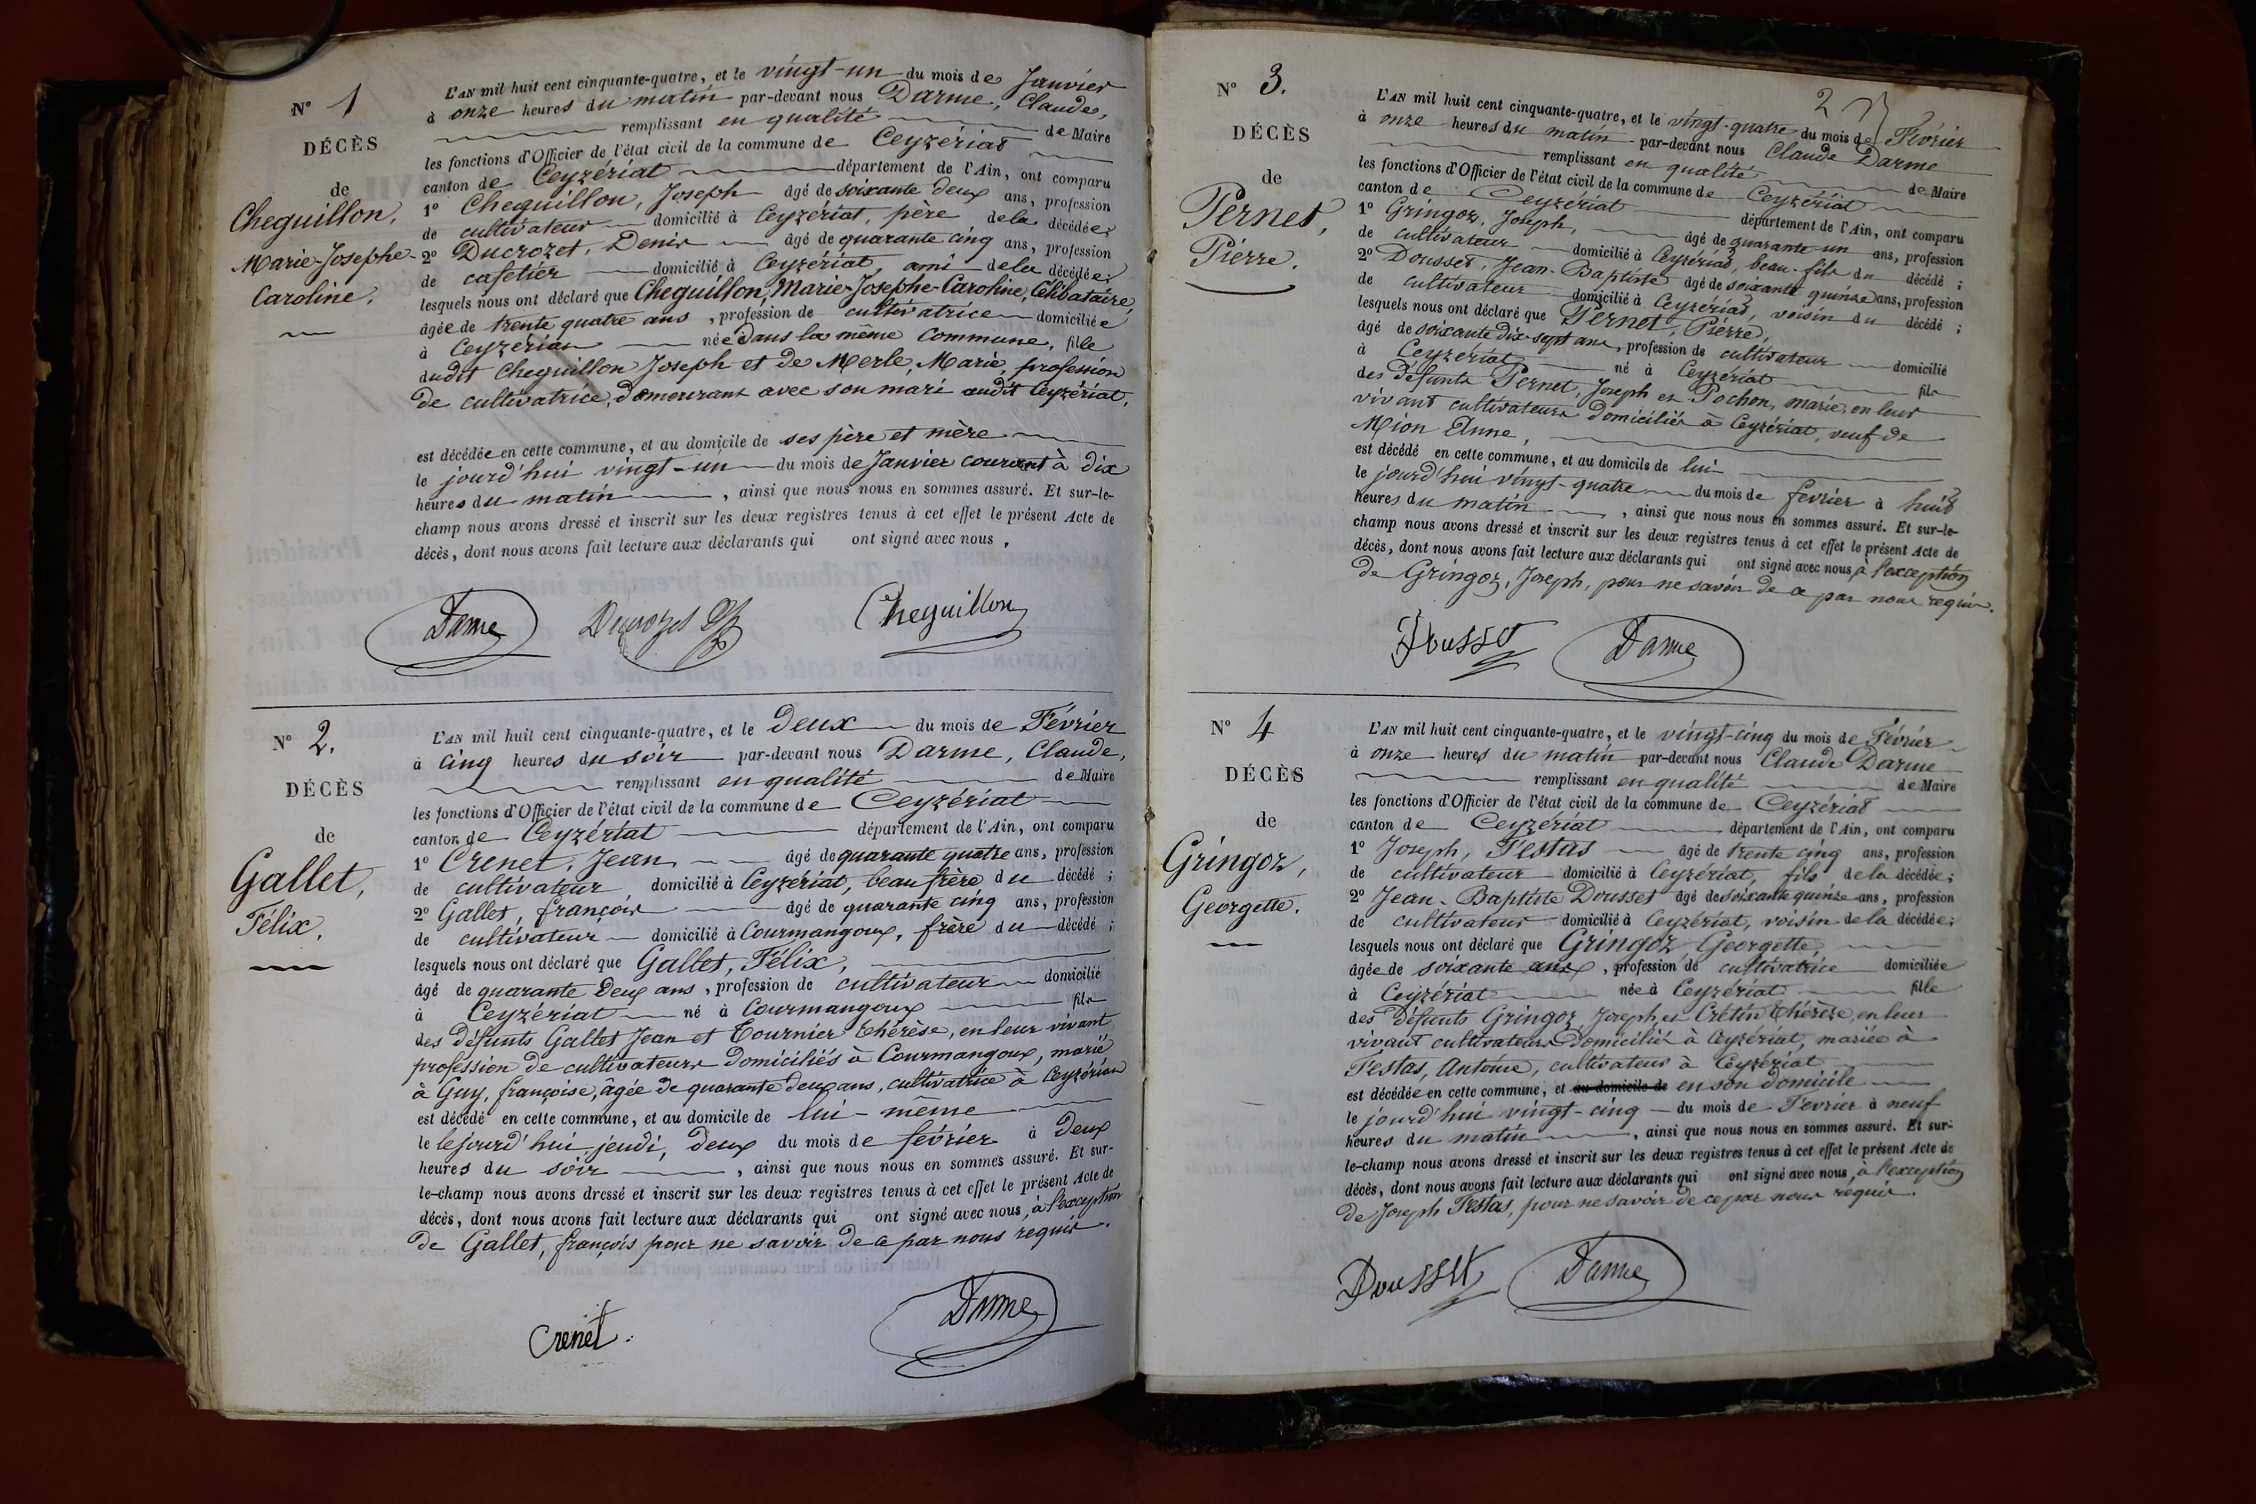 N° 1
DÉCÈS
de
Cheguillon,
Marie-Josephe-
Caroline.
L'AN mil huit cent cinquante-quatre, et le vingt-un du mois de Janvier
à onze heures du matin par-devant nous Darme, Claude,
remplissant en qualité de Maire
les fonctions d'Officier de l'état civil de la commune de Ceyzériat
canton de Ceyzériat département de l'Ain, ont comparu
1° Cheguillon, Joseph âgé de soixante deux ans, profession
de cultivateur domicilié à Ceyzériat, père de la décédée;
2° Ducrozet, Denis âgé de quarante cinq ans, profession
de cafetier domicilié à Ceyzériat, ami de la décédée;
lesquels nous ont déclaré que Cheguillon, Marie-Josephe-Caroline, Célibataire,
âgée de trente quatre ans, profession de cultivatrice domiciliée
à Ceyzeriat née dans la même commune, fille
dudit Cheguillon Joseph et de Merle, Marie, profession
de cultivatrice, demeurant avec son mari audit Ceyzériat,
est décédée en cette commune, et au domicile de ses père et mère
le jourd'hui vingt-un du mois de Janvier courant à dix
heures du matin, ainsi que nous nous en sommes assuré. Et sur-le-
champ nous avons dressé et inscrit sur les deux registres tenus à cet effet le présent Acte de
décès, dont nous avons fait lecture aux déclarants qui ont signé avec nous.
Darme Ducrozet Cheguillon
N° 2.
DÉCÈS
de
Gallet,
Félix.
L'AN mil huit cent cinquante-quatre, et le Deux du mois de Février
à cinq heures du soir par-devant nous Darme, Claude,
remplissant en qualité de Maire
les fonctions d'Officier de l'état civil de la commune de Ceyzériat
canton de Ceyzériat département de l'Ain, ont comparu
1° Crenet, Jean âgé de quarante quatre ans, profession
de cultivateur domicilié à Ceyzériat, beau frère du décédé;
2° Gallet, françois âgé de quarante cinq ans, profession
de cultivateur domicilié à Courmangoux, frère du décédé;
lesquels nous ont déclaré que Gallet, Félix,
âgé de quarante Deux ans, profession de cultivateur domicilié
à Ceyzériat né à Courmangoux fils
des défunts Gallet Jean et Tournier Thérèse, en leur vivant
profession de cultivateurs domiciliés à Courmangoux, marié
à Guy, françoise, âgée de quarante deux ans, cultivatrice à Ceyzériat
est décédé en cette commune, et au domicile de lui-même
le le jourd'hui jeudi, deux du mois de février à deux
heures du soir, ainsi que nous nous en sommes assuré. Et sur-
le-champ nous avons dressé et inscrit sur les deux registres tenus à cet effet le présent Acte de
décès, dont nous avons fait lecture aux déclarants qui ont signé avec nous, à l'exception
de Gallet, françois pour ne savoir de ce par nous requis.
Crenet Darme
2
N° 3.
DÉCÈS
de
Pernet,
Pierre.
L'AN mil huit cent cinquante-quatre, et le vingt-quatre du mois de Février
à onze heures du matin par-devant nous Claude Darme
remplissant en qualité de Maire
les fonctions d'Officier de l'état civil de la commune de Ceyzériat
canton de Ceyzériat département de l'Ain, ont comparu
1° Gringoz, Joseph, âgé de quarante-un ans, profession
de cultivateur domicilié à Ceyzériat, beau-fils du décédé;
2° Dousset, Jean-Baptiste âgé de soixante quinze ans, profession
de cultivateur domicilié à Ceyzériat, voisin du décédé;
lesquels nous ont déclaré que Pernet, Pierre,
âgé de soixante dix-sept ans, profession de cultivateur domicilié
à Ceyzériat né à Ceyzériat fils
des défunts Pernet, Joseph et Pochon, marie, en leur
vivant cultivateurs domiciliés à Ceyzériat, veuf de
Mion Anne,
est décédé en cette commune, et au domicile de lui
le jourd'hui vingt-quatre du mois de fevrier à huit
heures du matin, ainsi que nous nous en sommes assuré. Et sur-le-
champ nous avons dressé et inscrit sur les deux registres tenus à cet effet le présent Acte de
décès, dont nous avons fait lecture aux déclarants qui ont signé avec nous, à l'exception
de Gringoz, Joseph, pour ne savoir de ce par nous requis.
Dousset Darme
N° 4
DÉCÈS
de
Gringoz,
Georgette.
L'AN mil huit cent cinquante-quatre, et le vingt-cinq du mois de Février
à onze heures du matin par-devant nous Claude Darme
remplissant en qualité de Maire
les fonctions d'Officier de l'état civil de la commune de Ceyzériat
canton de Ceyzériat département de l'Ain, ont comparu
1° Joseph, Festas âgé de trente cinq ans, profession
de cultivateur domicilié à Ceyzériat, fils de la décédée;
2° Jean-Baptiste Dousset âgé de soixante quinze ans, profession
de cultivateur domicilié à Ceyzériat, voisin de la décédée;
lesquels nous ont déclaré que Gringoz, Georgette,
âgée de soixante ans, profession de cultivatrice domiciliée
à Ceyzériat née à Ceyzériat fille
des défunts Gringoz, Joseph, et Crétin Thérèse, en leur
vivant cultivateurs domiciliés à Ceyzériat, mariée à
Festas, Antoine, cultivateur à Ceyzériat
est décédée en cette commune, et au domicile de en son domicile
le jourd'hui vingt-cinq du mois de Fevrier à neuf
heures du matin, ainsi que nous nous en sommes assuré. Et sur-
le-champ nous avons dressé et inscrit sur les deux registres tenus à cet effet le présent Acte de
décès, dont nous avons fait lecture aux déclarants qui ont signé avec nous, à l'exception
de Joseph Festas, pour ne savoir de ce par nous requis.
Dousset Darme